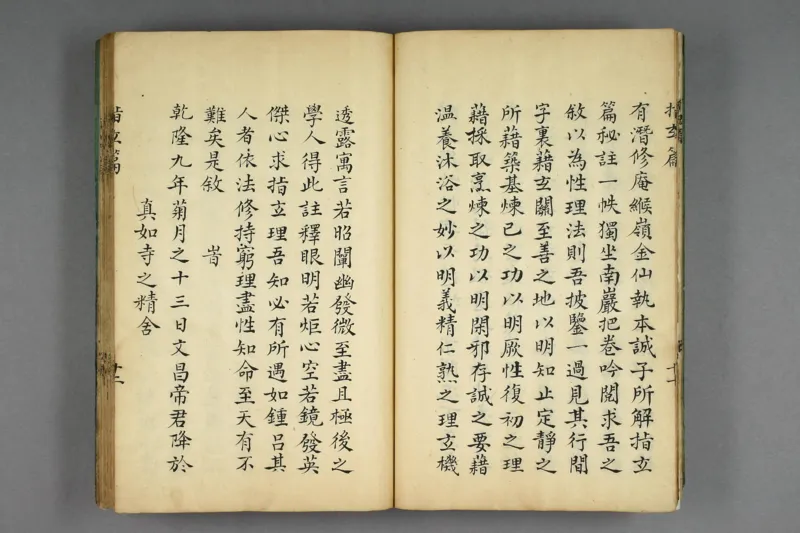 指玄篇
有潛修庵緱嶺金仙執本誠子所解指玄
篇秘註一帙獨坐南巖把卷吟閱求吾之
敘以為性理法則吾披鑒一過見其行間
字裏藉玄關至善之地以明知止定靜之
所藉築基煉己之功以明厥性復初之理
藉採取烹煉之功以明閑邪存誠之要藉
温養沐浴之妙以明義精仁熟之理玄機
透露寓言若昭闡幽發微至盡且極後之
學人得此註釋眼明若炬心空若鏡發英
傑心求指玄理吾知必有所遇如鍾呂其
人者依法修持窮理盡性知命至天有不
難矣是敘 旹
乾隆九年菊月之十三日文昌帝君降於
真如寺之精舍
指玄篇
十二